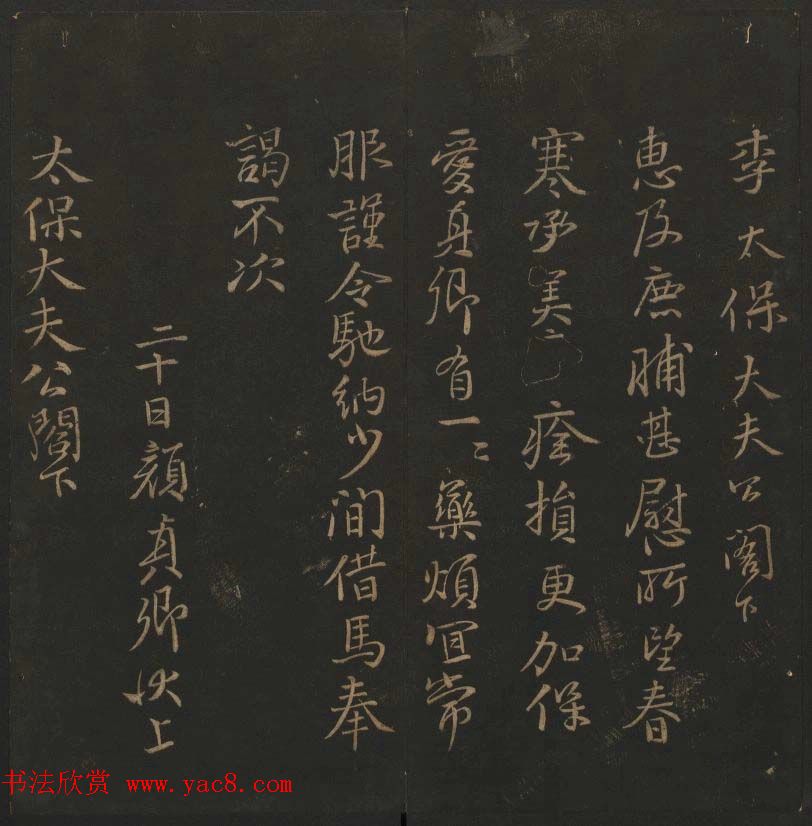 李太保大夫公閣下
惠及鹿脯甚慰所望春
寒承美疹痊損更加保
愛真卿有一二藥煩宜常
服謹令馳納少間借馬奉
謁不次
二十日顏真卿狀上
太保大夫公閣下
书法欣赏 www.yac8.com